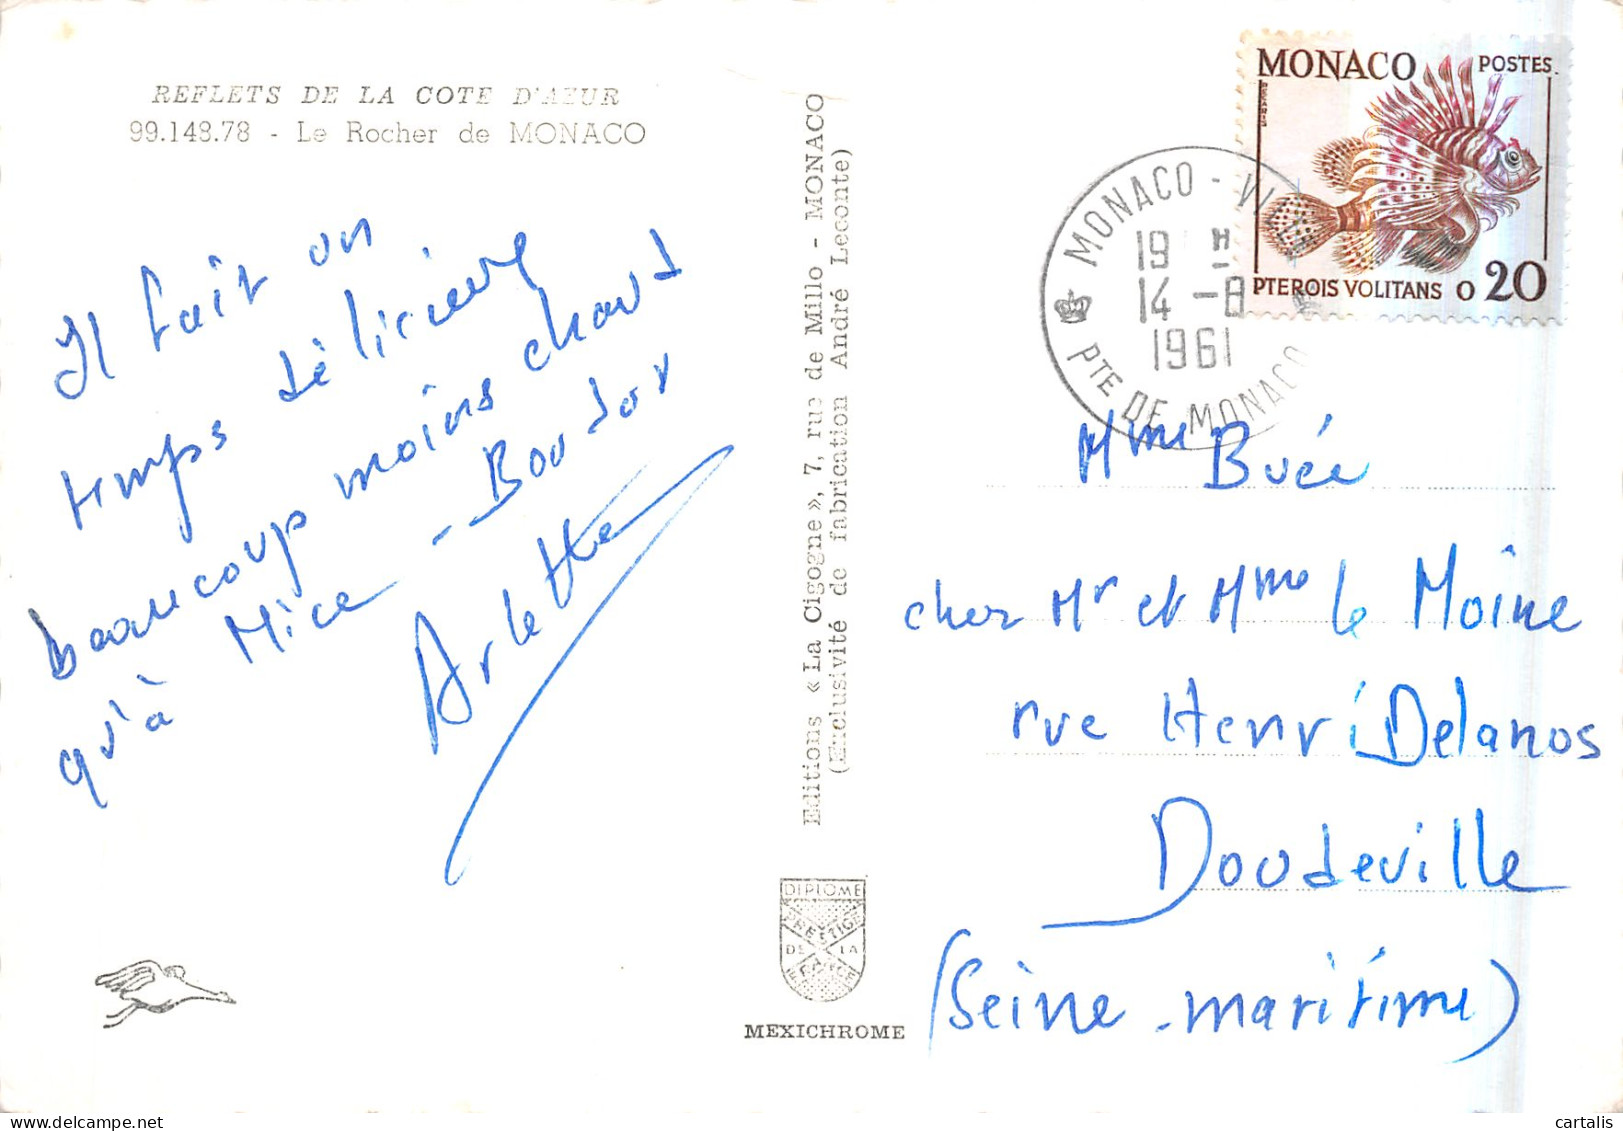 REFLETS DE LA COTE D'AZUR
99.148.78 - Le Rocher de MONACO
Il fait un
temps délicieux
beaucoup moins chaud
qu'à Nice -
Arlette
Editions « La Cigogne », 7, rue de Millo - MONACO
(Exclusivité de fabrication André Leconte)
DIPLOME
PRESTIGE
DE LA
FRANCE
MEXICHROME
MONACO POSTES
PTEROIS VOLITANS 0 20
MONACO - VILLE
19 H
14 - 8
1961
PTE DE MONACO
Mme Buée
cher Mr et Mme le Moine
rue Henri Delanos
Doudeville
(Seine-maritime)
cartalis